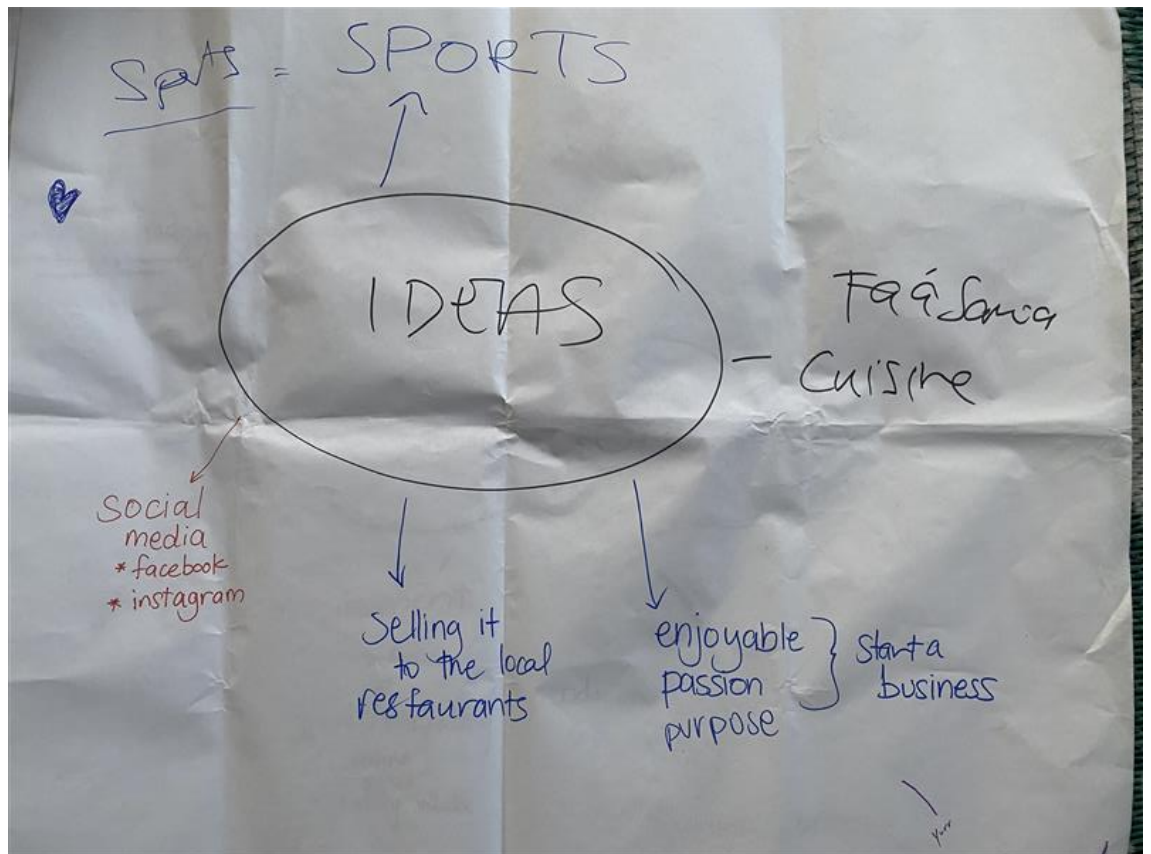 Sports = SPORTS
IDEAS
Faá Samoa
Cuisine
Social
media
* facebook
* instagram
Selling it
to the local
restaurants
enjoyable
passion
purpose
Start a
business